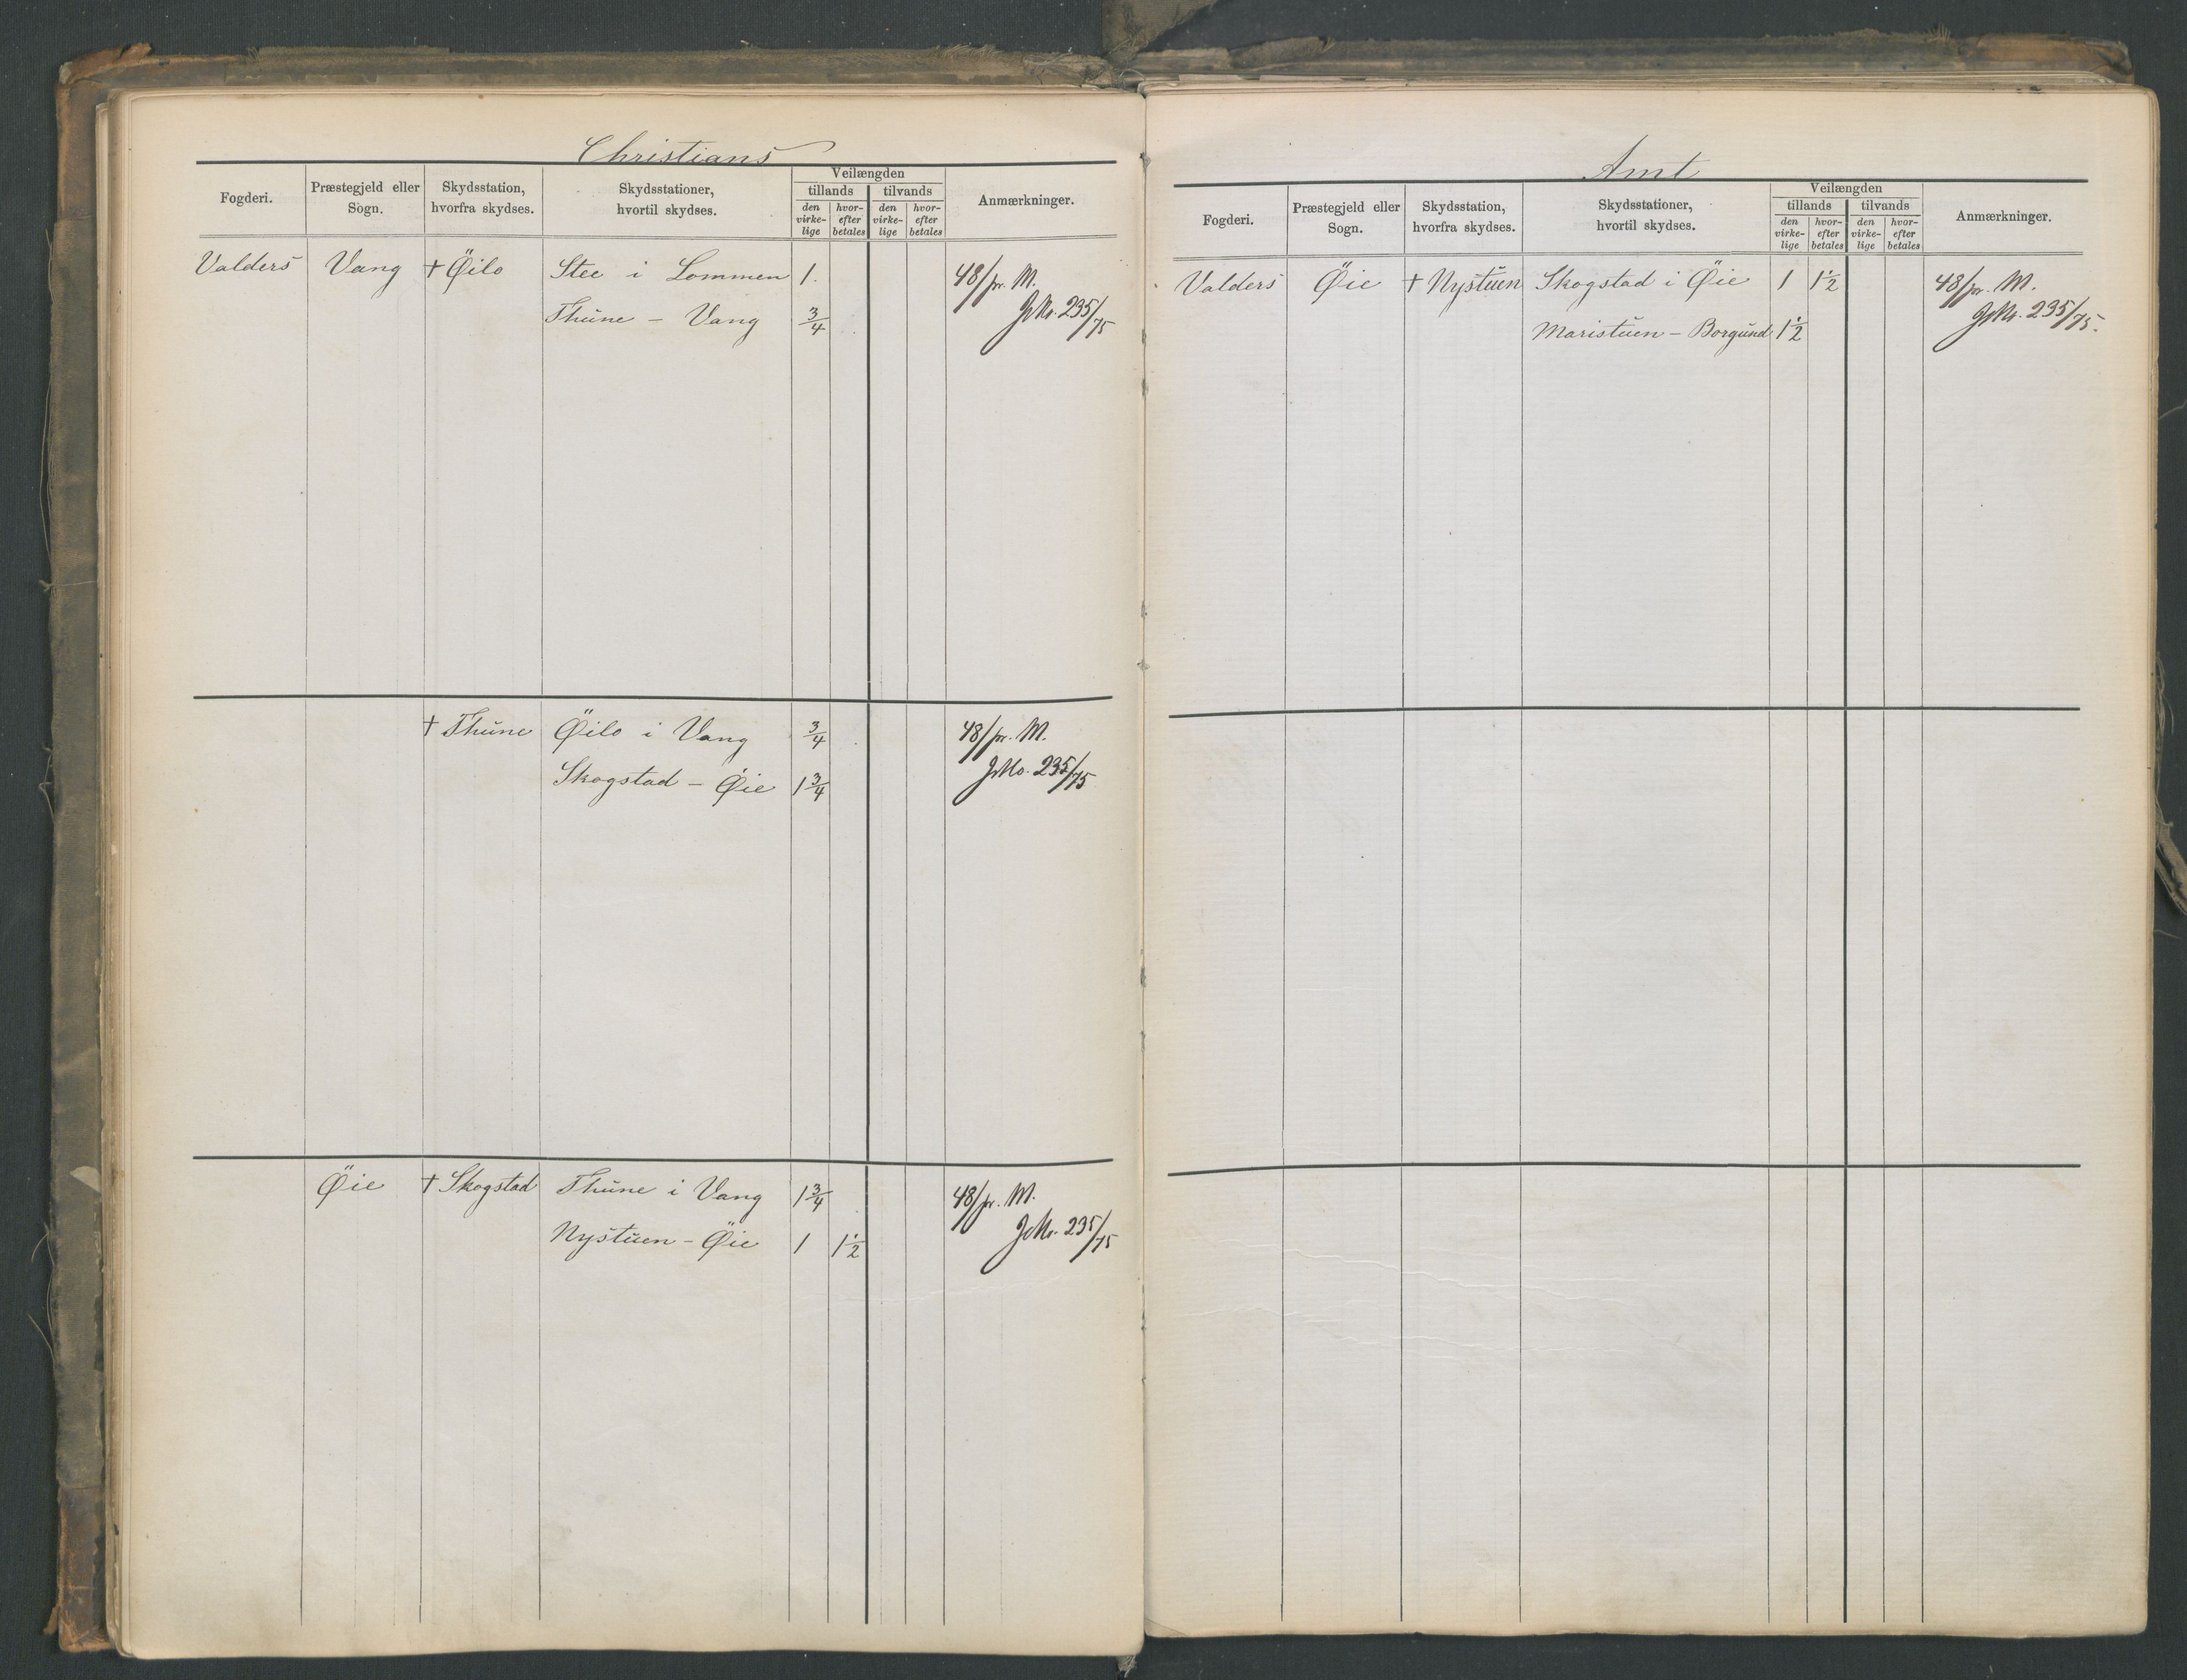 Christians
Fogderi. Præstegjeld eller Sogn. Skydsstation, hvorfra skydses. Skydsstationer, hvortil skydses. Veilængden tillands tilvands den virke-lige hvor-efter betales den virke-lige hvor-efter betales Anmærkninger.
Valders Vang + Øilo Stee i Lommen 1. 48/pr. M.
Thune – Vang 3/4 JNo. 235/75
+ Thune Øilo i Vang 3/4 48/pr. M.
Skogstad – Øie 1 3/4 JNo. 235/75
Øie + Skogstad Thune i Vang 1 3/4 48/pr. M.
Nystuen – Øie 1 1 1/2 JNo. 235/75
Amt
Fogderi. Præstegjeld eller Sogn. Skydsstation, hvorfra skydses. Skydsstationer, hvortil skydses. Veilængden tillands tilvands den virke-lige hvor-efter betales den virke-lige hvor-efter betales Anmærkninger.
Valders Øie + Nystuen Skogstad i Øie 1 1 1/2 48/pr. M.
Maristuen – Borgund 1 1/2 JNo. 235/75.